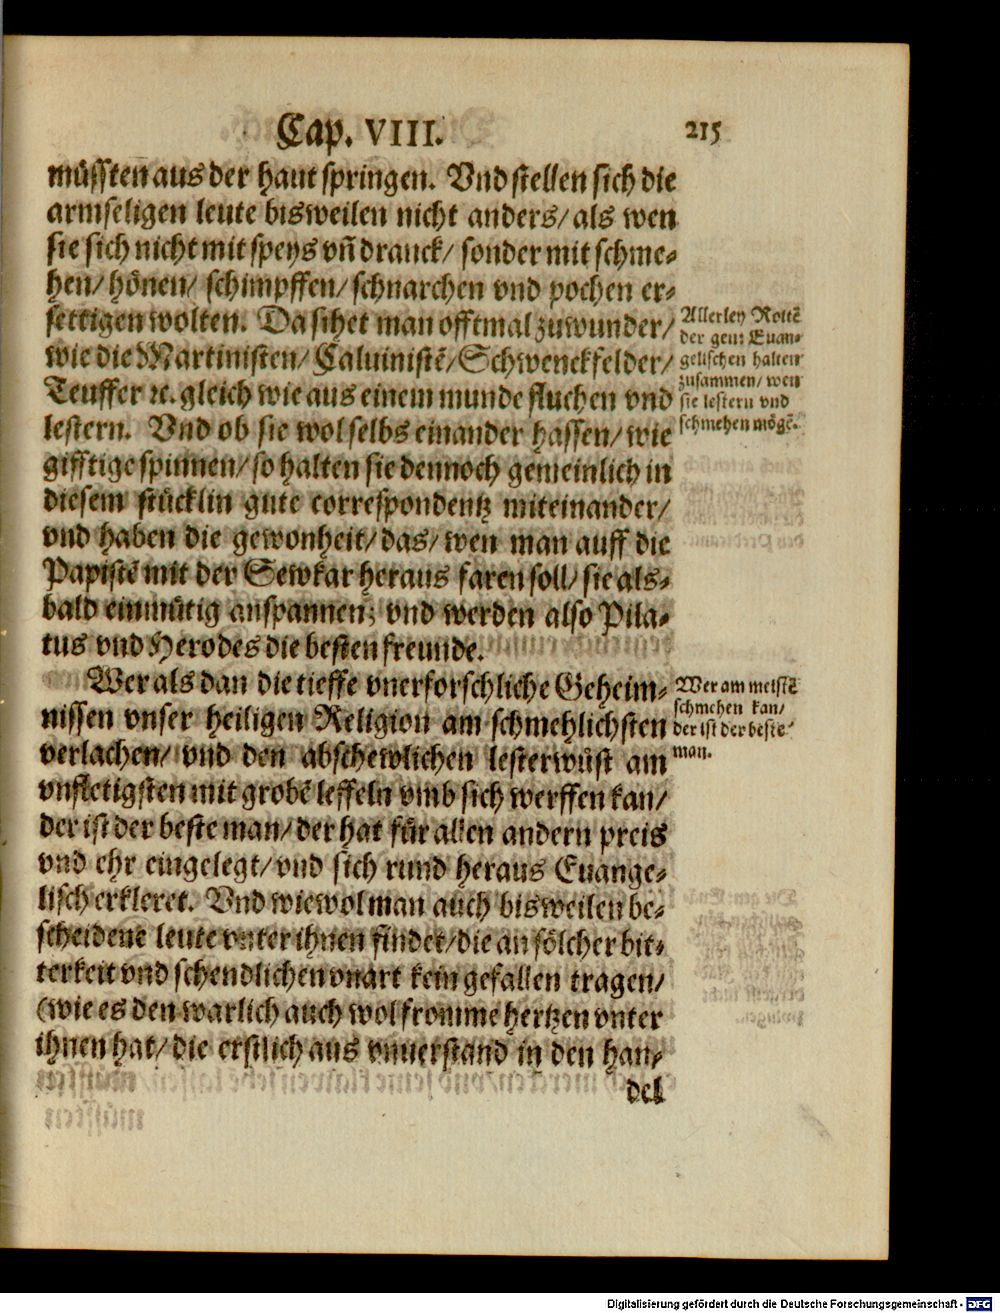 Cap. VIII. 215
müssten aus der haut springen. Vnd stellen sich die
armseligen leute bisweilen nicht anders/ als wen
sie sich nicht mit speys vn̄ dranck/ sonder mit schme-
hen/ hönen/ schimpffen/ schnarchen vnd pochen er-
settigen wolten. Da sihet man offtmal zuwunder/
wie die Martinisten/ Caluinistē/ Schwenckfelder/
Teuffer ꝛc. gleich wie aus einem munde fluchen vnd
lestern. Vnd ob sie wol selbs einander hassen/ wie
gifftige spinnen/ so halten sie dennoch gemeinlich in
diesem stücklin gute correspondentz miteinander/
vnd haben die gewonheit/ das/ wen man auff die
Papistē mit der Sewkar heraus faren soll/ sie als-
bald einmütig anspannen; vnd werden also Pila-
tus vnd Herodes die besten freunde.
Wer als dan die tieffe vnerforschliche Geheim-
nissen vnser heiligen Religion am schmehlichsten
verlachen/ vnd den abschewlichen lesterwust am
vnfletigsten mit grobē leffeln vmb sich werffen kan/
der ist der beste man/ der hat für allen andern preis
vnd ehr eingelegt/ vnd sich rund heraus Euange-
lisch erkleret. Vnd wiewol man auch bisweilen be-
scheidene leute vnter ihnen findet/ die an sölcher bit-
terkeit vnd schendlichen vnart kein gefallen tragen/
(wie es den warlich auch wol fromme hertzen vnter
ihnen hat/ die erstlich aus vnuerstand in den han-
del
Allerley Rottē
der gem: Euan-
gelischen halten
zusammen/ wen
sie lestern vnd
schmehen mögē.
Wer am meistē
schmehen kan/
der ist der beste
man.
Digitalisierung gefördert durch die Deutsche Forschungsgemeinschaft - DFG